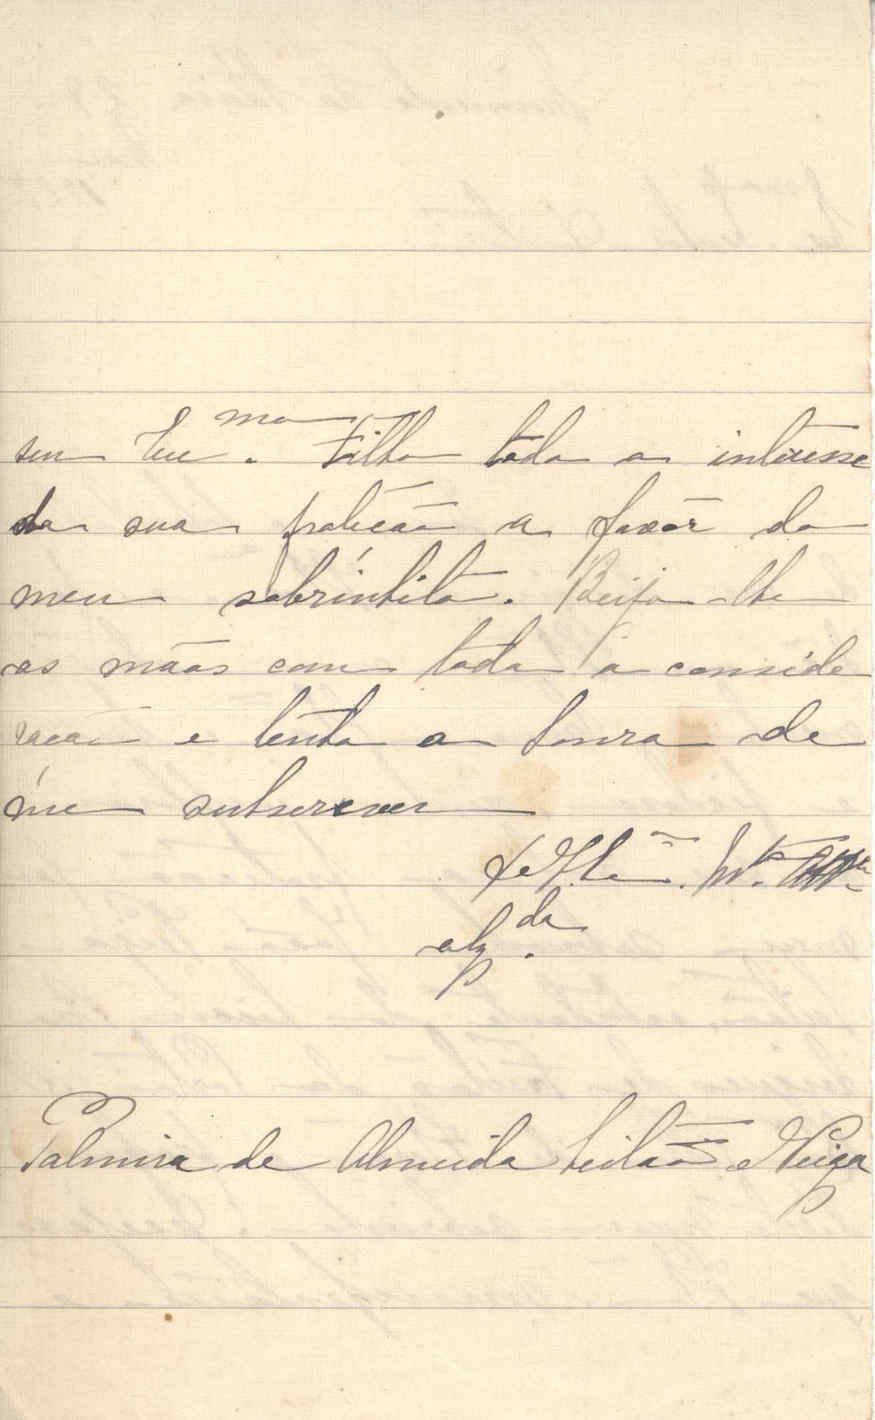 seu Exc.mo Filho todo o interesse
da sua proteção a favôr do
meu sobrinhito. Beijo-lhe
as mãos com toda a conside
ração e tenho a honra de
me subscrever
De V. Ex.
obg.da
Palmira de Almeida Leitão Veiga